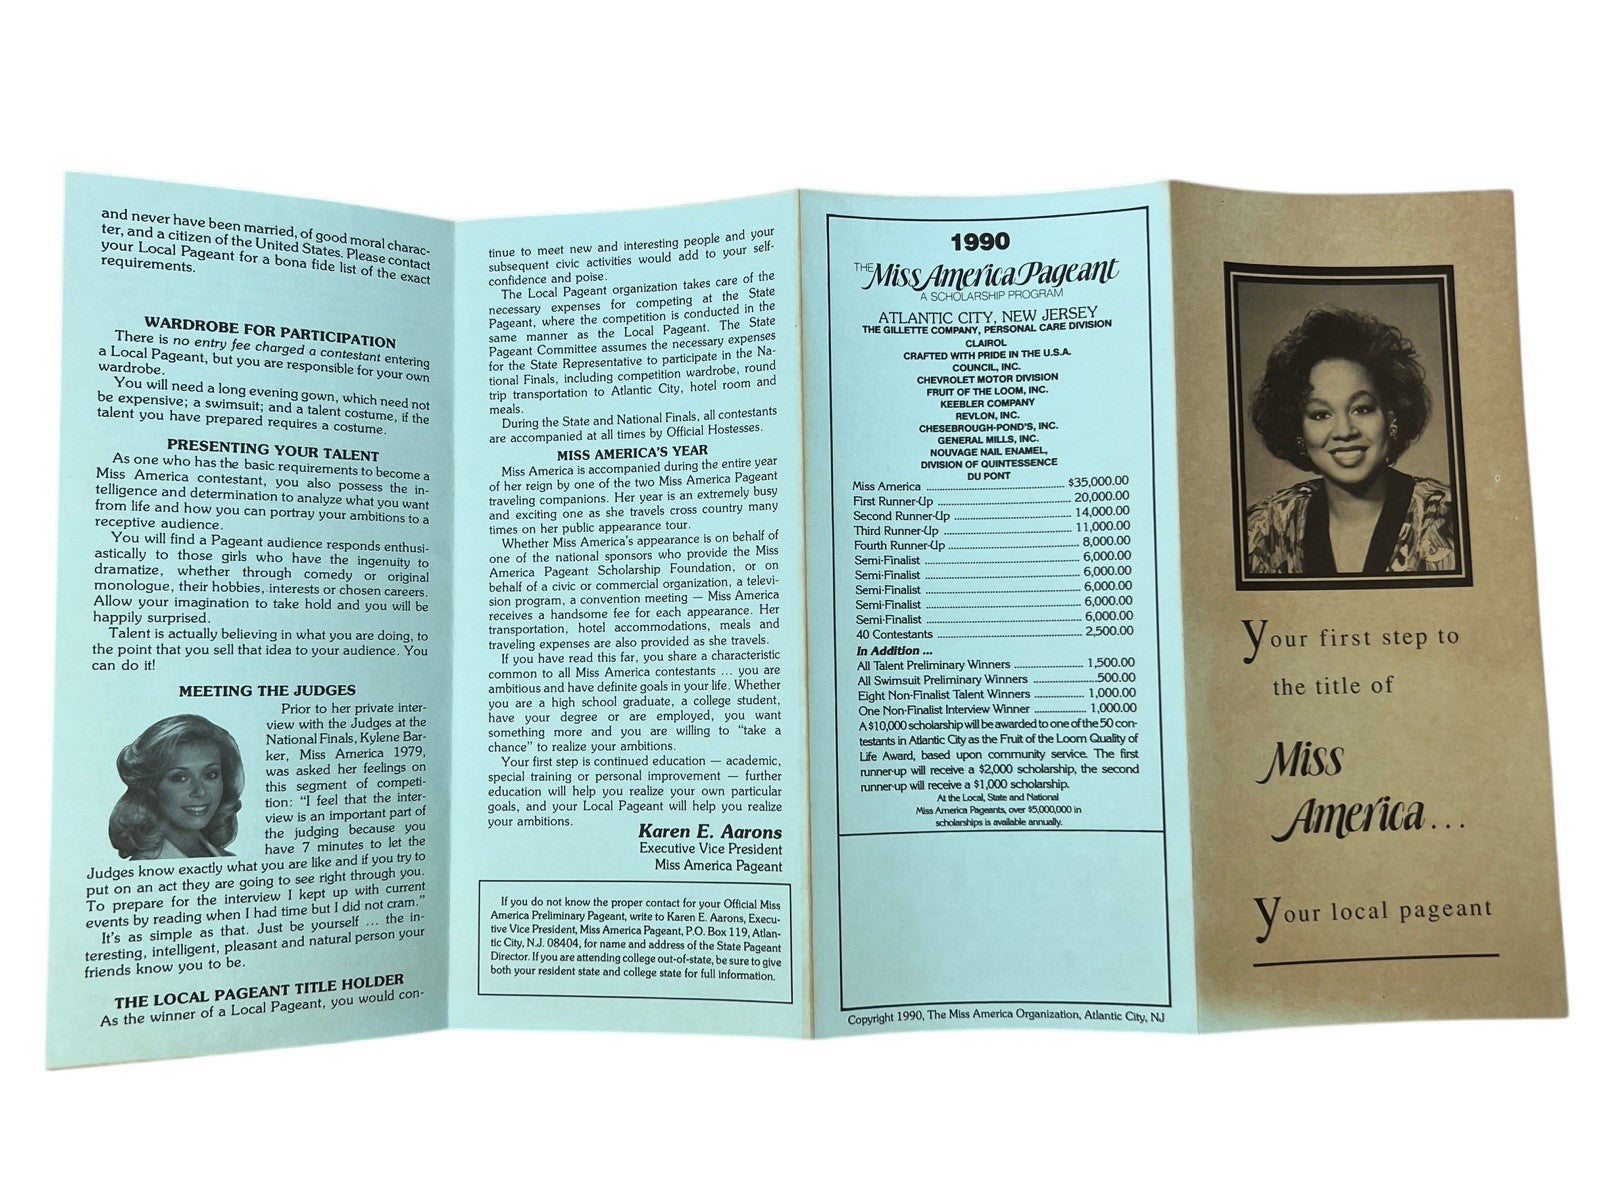 and never have been married, of good moral charac-
ter, and a citizen of the United States. Please contact
your Local Pageant for a bona fide list of the exact
requirements.
WARDROBE FOR PARTICIPATION
There is no entry fee charged a contestant entering
a Local Pageant, but you are responsible for your own
wardrobe.
You will need a long evening gown, which need not
be expensive; a swimsuit; and a talent costume, if the
talent you have prepared requires a costume.
PRESENTING YOUR TALENT
As one who has the basic requirements to become a
Miss America contestant, you also possess the in-
telligence and determination to analyze what you want
from life and how you can portray your ambitions to a
receptive audience.
You will find a Pageant audience responds enthusi-
astically to those girls who have the ingenuity to
dramatize, whether through comedy or original
monologue, their hobbies, interests or chosen careers.
Allow your imagination to take hold and you will be
happily surprised.
Talent is actually believing in what you are doing, to
the point that you sell that idea to your audience. You
can do it!
MEETING THE JUDGES
Prior to her private inter-
view with the Judges at the
National Finals, Kylene Bar-
ker, Miss America 1979,
was asked her feelings on
this segment of competi-
tion: "I feel that the inter-
view is an important part of
the judging because you
have 7 minutes to let the
Judges know exactly what you are like and if you try to
put on an act they are going to see right through you.
To prepare for the interview I kept up with current
events by reading when I had time but I did not cram."
It's as simple as that. Just be yourself ... the in-
teresting, intelligent, pleasant and natural person your
friends know you to be.
THE LOCAL PAGEANT TITLE HOLDER
As the winner of a Local Pageant, you would con-
tinue to meet new and interesting people and your
subsequent civic activities would add to your self-
confidence and poise.
The Local Pageant organization takes care of the
necessary expenses for competing at the State
Pageant, where the competition is conducted in the
same manner as the Local Pageant. The State
Pageant Committee assumes the necessary expenses
for the State Representative to participate in the Na-
tional Finals, including competition wardrobe, round
trip transportation to Atlantic City, hotel room and
meals.
During the State and National Finals, all contestants
are accompanied at all times by Official Hostesses.
MISS AMERICA'S YEAR
Miss America is accompanied during the entire year
of her reign by one of the two Miss America Pageant
traveling companions. Her year is an extremely busy
and exciting one as she travels cross country many
times on her public appearance tour.
Whether Miss America's appearance is on behalf of
one of the national sponsors who provide the Miss
America Pageant Scholarship Foundation, or on
behalf of a civic or commercial organization, a televi-
sion program, a convention meeting — Miss America
receives a handsome fee for each appearance. Her
transportation, hotel accommodations, meals and
traveling expenses are also provided as she travels.
If you have read this far, you share a characteristic
common to all Miss America contestants ... you are
ambitious and have definite goals in your life. Whether
you are a high school graduate, a college student,
have your degree or are employed, you want
something more and you are willing to "take a
chance" to realize your ambitions.
Your first step is continued education — academic,
special training or personal improvement — further
education will help you realize your own particular
goals, and your Local Pageant will help you realize
your ambitions.
Karen E. Aarons
Executive Vice President
Miss America Pageant
If you do not know the proper contact for your Official Miss
America Preliminary Pageant, write to Karen E. Aarons, Execu-
tive Vice President, Miss America Pageant, P.O. Box 119, Atlan-
tic City, N.J. 08404, for name and address of the State Pageant
Director. If you are attending college out-of-state, be sure to give
both your resident state and college state for full information.
1990
THE Miss America Pageant
A SCHOLARSHIP PROGRAM
ATLANTIC CITY, NEW JERSEY
THE GILLETTE COMPANY, PERSONAL CARE DIVISION
CLAIROL
CRAFTED WITH PRIDE IN THE U.S.A.
COUNCIL, INC.
CHEVROLET MOTOR DIVISION
FRUIT OF THE LOOM, INC.
KEEBLER COMPANY
REVLON, INC.
CHESEBROUGH-POND'S, INC.
GENERAL MILLS, INC.
NOUVAGE NAIL ENAMEL,
DIVISION OF QUINTESSENCE
DU PONT
Miss America ........ $35,000.00
First Runner-Up ........ 20,000.00
Second Runner-Up ........ 14,000.00
Third Runner-Up ........ 11,000.00
Fourth Runner-Up ........ 8,000.00
Semi-Finalist ........ 6,000.00
Semi-Finalist ........ 6,000.00
Semi-Finalist ........ 6,000.00
Semi-Finalist ........ 6,000.00
Semi-Finalist ........ 6,000.00
40 Contestants ........ 2,500.00
In Addition ...
All Talent Preliminary Winners ........ 1,500.00
All Swimsuit Preliminary Winners ........ 500.00
Eight Non-Finalist Talent Winners ........ 1,000.00
One Non-Finalist Interview Winner ........ 1,000.00
A $10,000 scholarship will be awarded to one of the 50 con-
testants in Atlantic City as the Fruit of the Loom Quality of
Life Award, based upon community service. The first
runner-up will receive a $2,000 scholarship, the second
runner-up will receive a $1,000 scholarship.
At the Local, State and National
Miss America Pageants, over $5,000,000 in
scholarships is available annually.
Copyright 1990, The Miss America Organization, Atlantic City, NJ
Your first step to
the title of
Miss
America...
Your local pageant